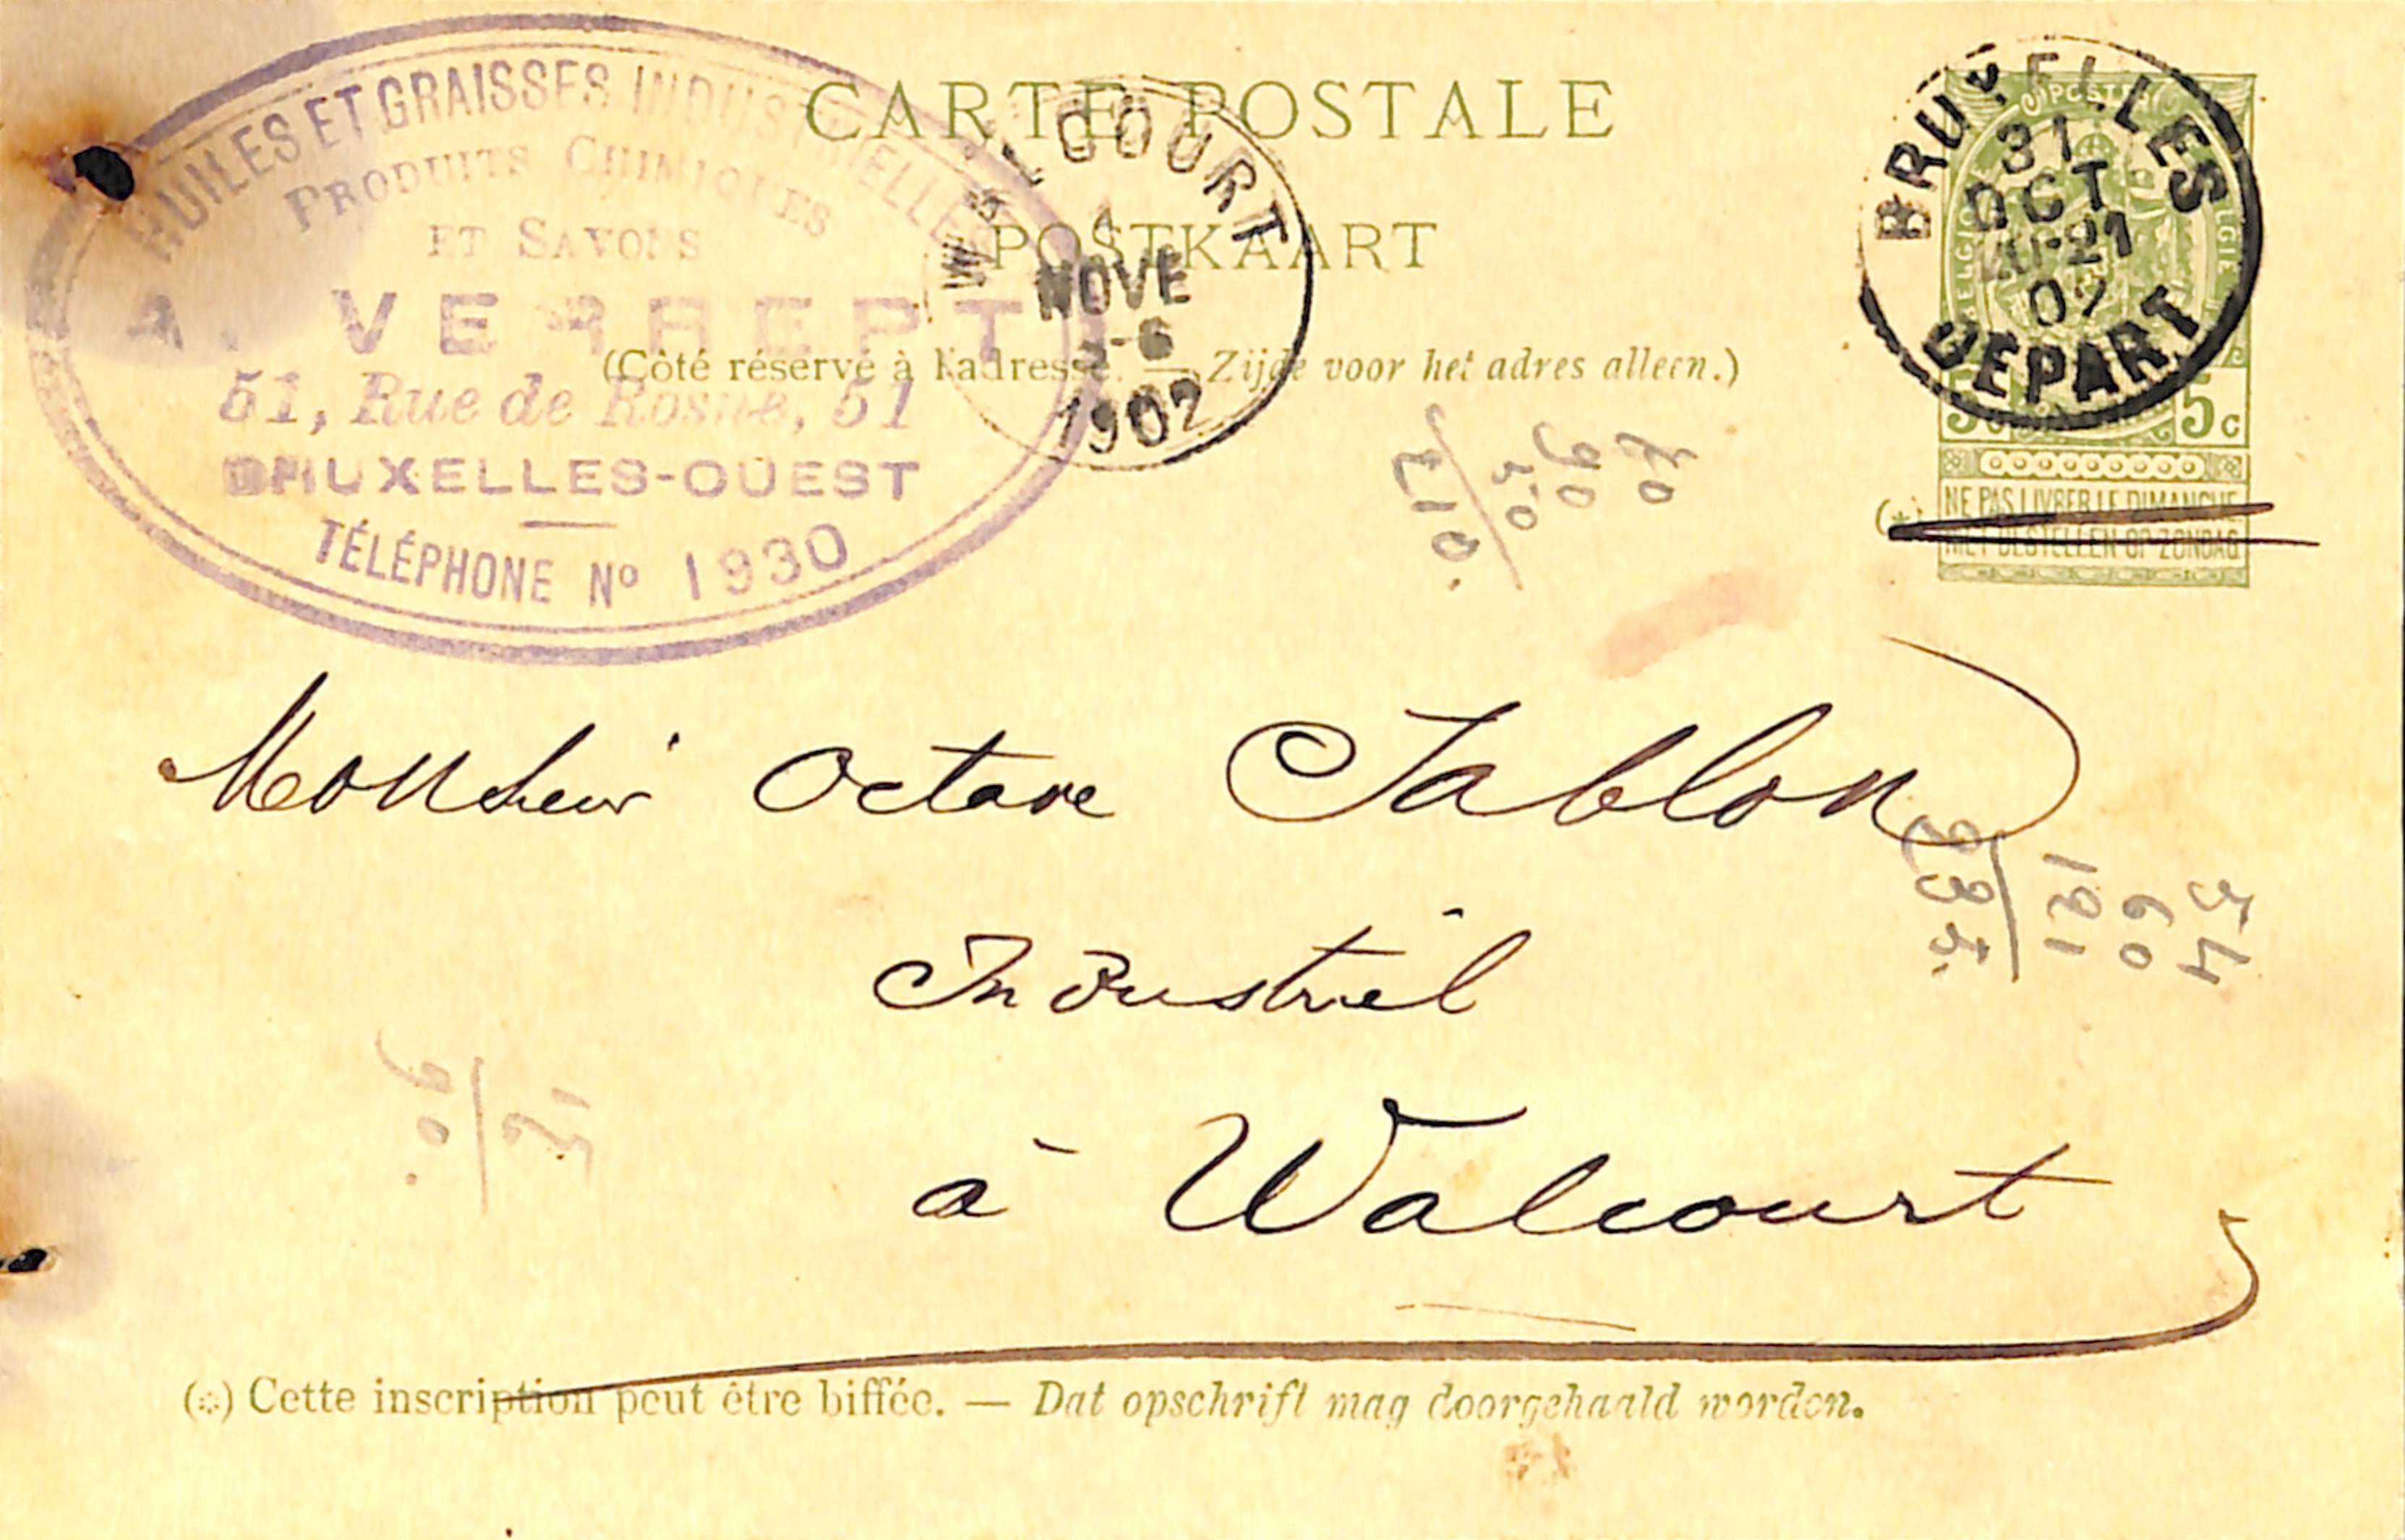 HUILES ET GRAISSES INDUSTRIELLES
PRODUITS CHIMIQUES
ET SAVONS
A. VERREPT
51, Rue de Rosne, 51
BRUXELLES-OUEST
TÉLÉPHONE Nº 1930
CARTE POSTALE
POSTKAART
(Côté réservé à l'adresse. — Zijde voor het adres alleen.)
WALCOURT
1
NOVE
1902
BRUXELLES
31
OCT
20-21
02
DEPART
POSTERIJ
BELGIQUE
BELGIË
5c
5c
(*)
NE PAS LIVRER LE DIMANCHE
NIET BESTELLEN OP ZONDAG
70
90
50
210.
Monsieur Octave Sablon
Industriel
à Walcourt
54
60
191
(*) Cette inscription peut être biffée. — Dat opschrift mag doorgehaald worden.